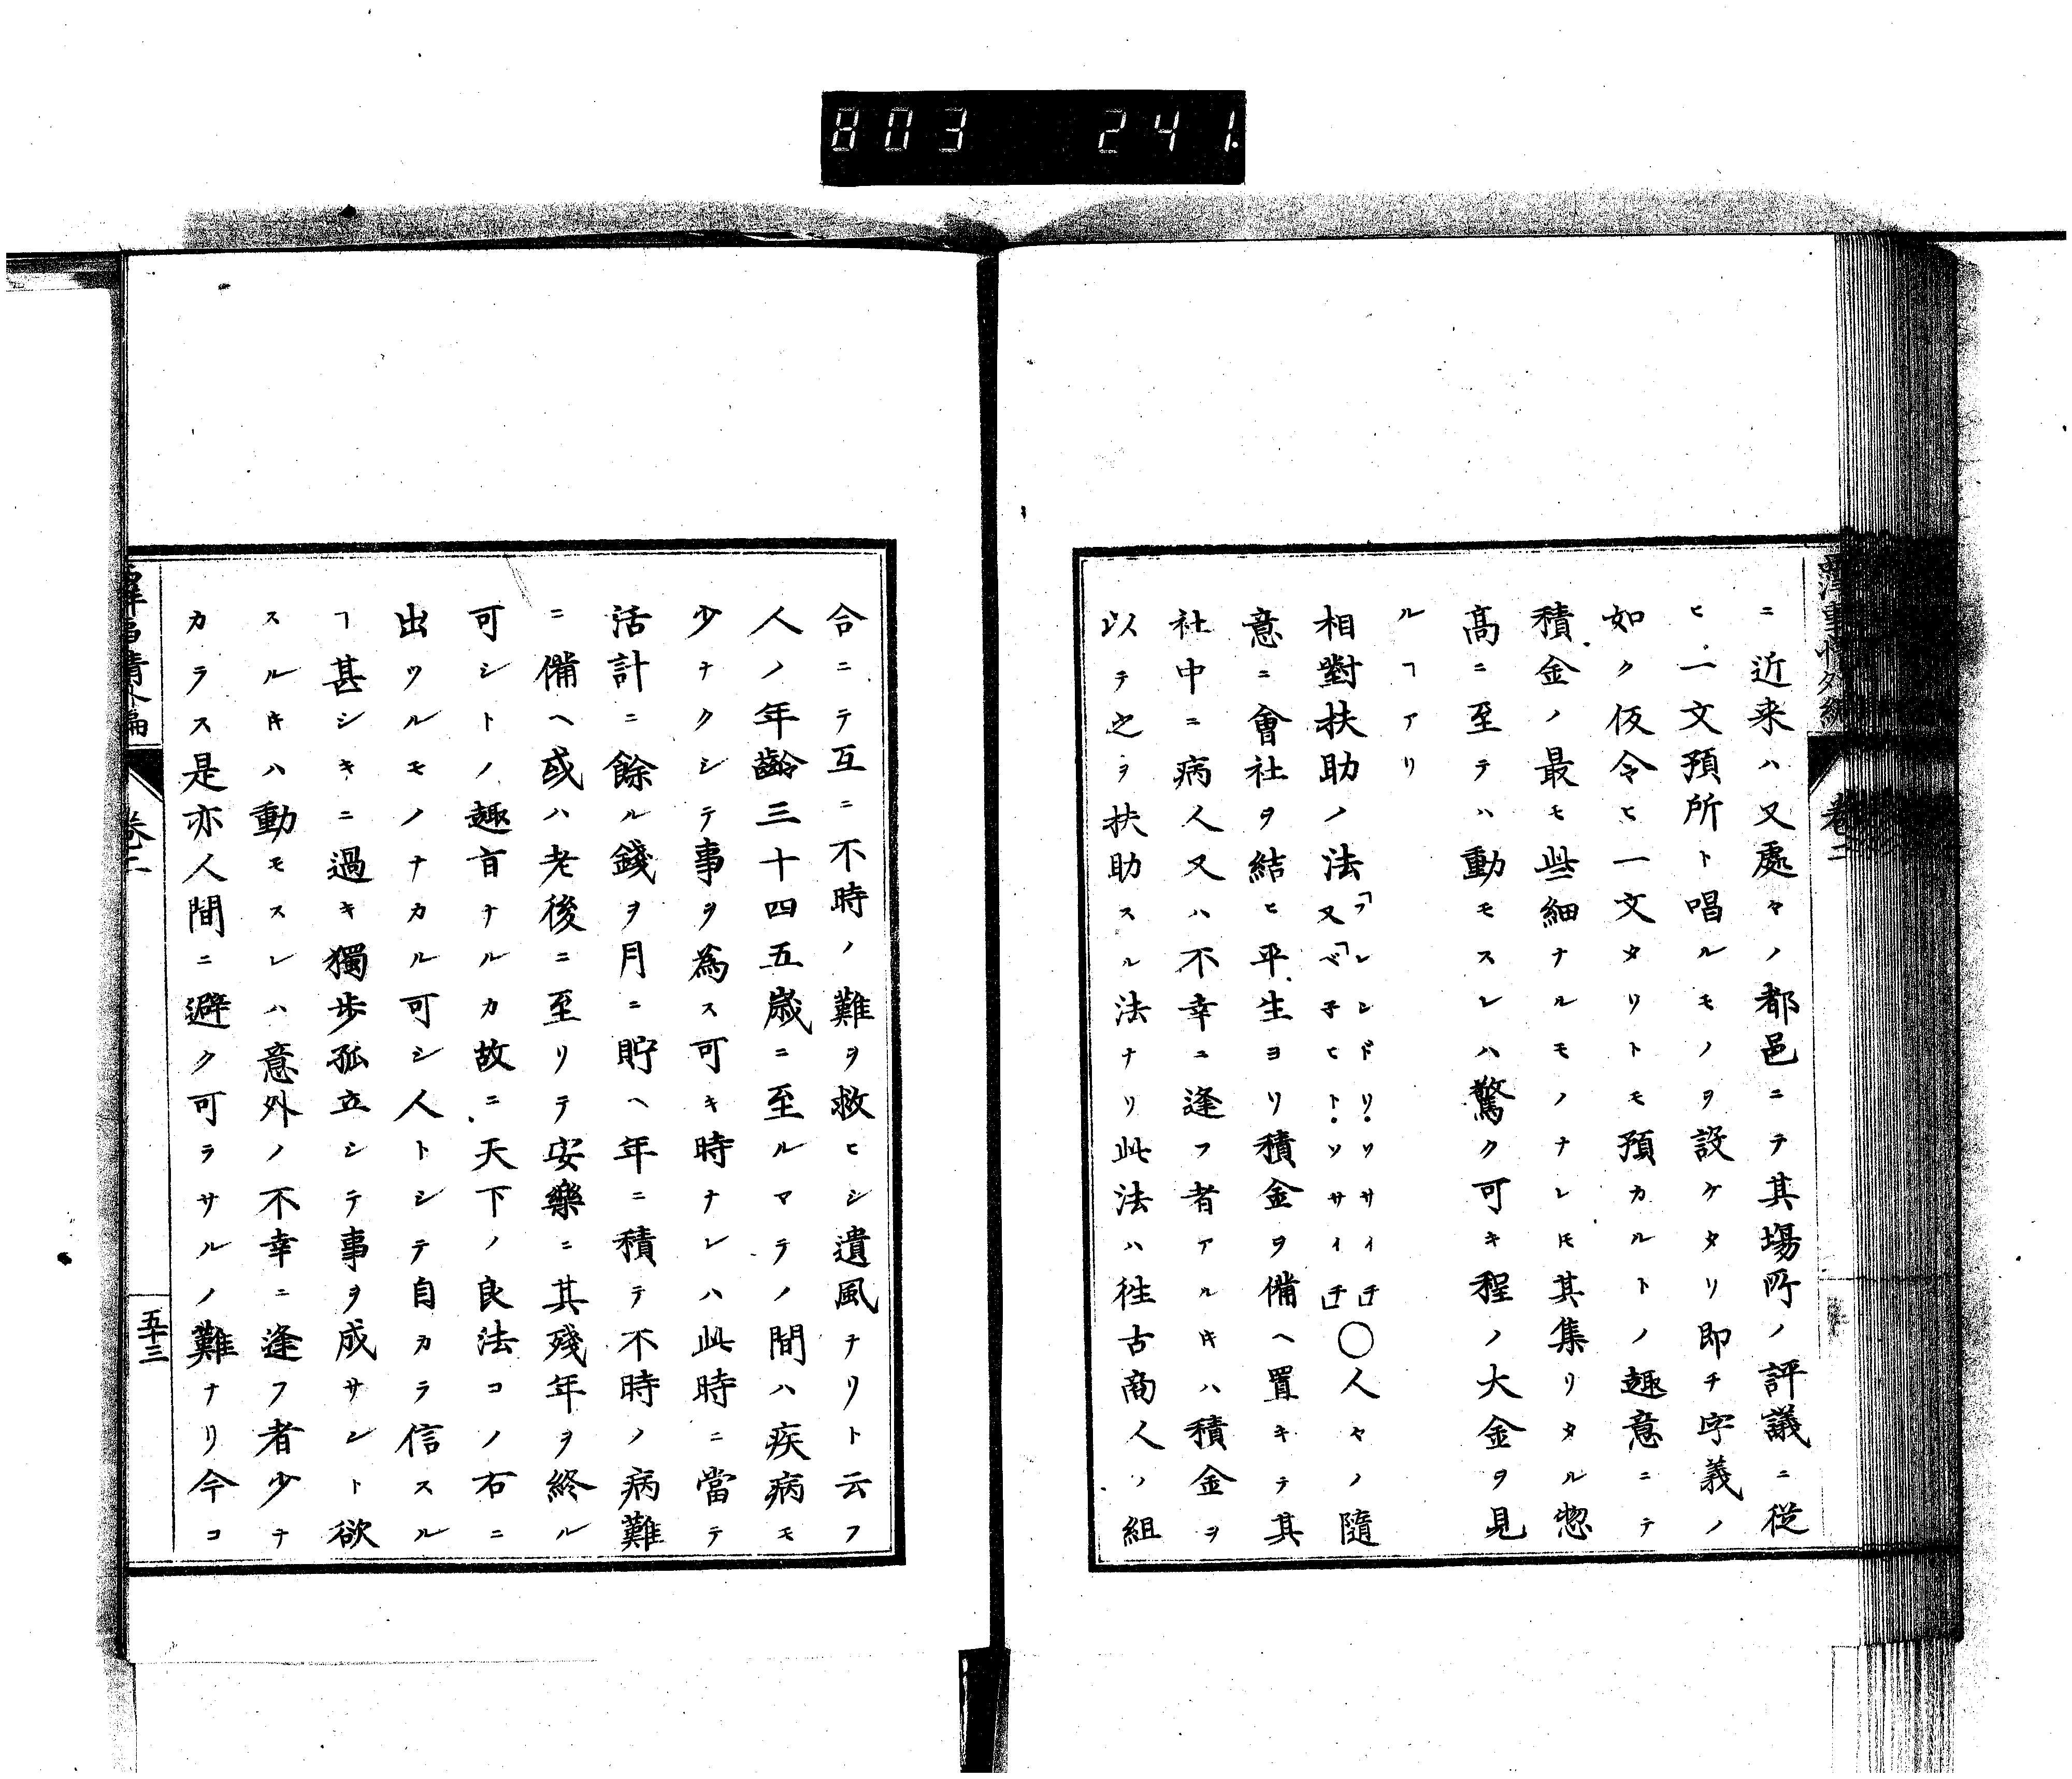 803 241.
ニ近来ハ又處々ノ都邑ニテ其場所ノ評議ニ從
ヒ一文預所ト唱ルモノヲ設ケタリ即チ字義ノ
如ク仮令ヒ一文タリトモ預カルトノ趣意ニテ
積金ノ最モ些細ナルモノナレ𪜈其集リタル惣
高ニ至テハ動モスレハ驚ク可キ程ノ大金ヲ見
ルヿアリ
相對扶助ノ法「フレンドリ・ソサイチ」又「ベ子ヒト・ソサイチ」〇人々ノ隨
意ニ會社ヲ結ヒ平生ヨリ積金ヲ備ヘ置キテ其
社中ニ病人又ハ不幸ニ逢フ者アルキハ積金ヲ
以テ之ヲ扶助スル法ナリ此法ハ徃古商人ノ組
合ニテ互ニ不時ノ難ヲ救ヒシ遺風ナリト云フ
人ノ年齢三十四五歳ニ至ルマテノ間ハ疾病モ
少ナクシテ事ヲ為ス可キ時ナレハ此時ニ當テ
活計ニ餘ル錢ヲ月ニ貯ヘ年ニ積テ不時ノ病難
ニ備ヘ或ハ老後ニ至リテ安樂ニ其殘年ヲ終ル
可シトノ趣旨ナルカ故ニ天下ノ良法コノ右ニ
出ツルモノナカル可シ人トシテ自カラ信スル
ヿ甚シキニ過キ獨歩孤立シテ事ヲ成サント欲
スルキハ動モスレハ意外ノ不幸ニ逢フ者少ナ
カラス是亦人間ニ避ク可ラサルノ難ナリ今コ
巻二
五十三